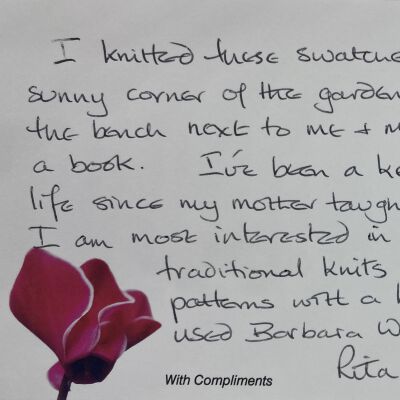 I knitted these swatche
sunny corner of the garden
the bench next to me + m
a book. I've been a ke
life since my mother taugh
I am most interested in
traditional knits
patterns with a
used Barbara W
Rita
With Compliments